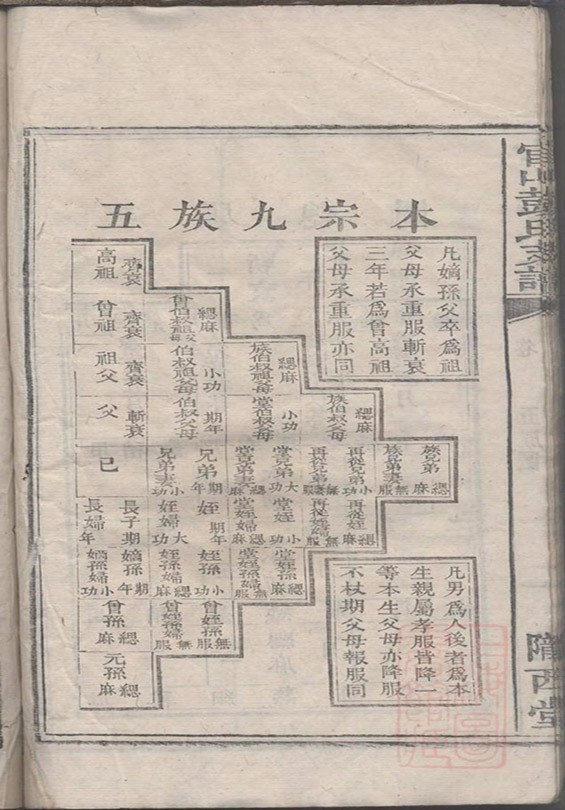 本宗九族五
凡嫡孫父卒爲祖
父母承重服斬衰
三年若爲曾高祖
父母承重服亦同
凡男爲人後者爲本
生親屬孝服皆降一
等本生父母亦降服
不杖期父母報服同
高祖 齊衰
曾祖 齊衰
曾伯叔祖父母 緦麻
祖父 齊衰
伯叔祖父母 小功
族伯叔祖父母 緦麻
父 斬衰
伯叔父母 期年
堂伯叔父母 小功
族伯叔父母 緦麻
己
兄弟 期年
兄弟妻 小功
堂兄弟 大功
堂兄弟妻 緦麻
再從兄弟 小功
再從兄弟妻 無服
族兄弟 緦麻
族兄弟妻 無服
長子 期年
長婦 期年
姪 期年
姪婦 大功
堂姪 小功
堂姪婦 緦麻
再從姪 緦麻
再從姪婦 無服
嫡孫 期年
嫡孫婦 小功
姪孫 小功
姪孫婦 緦麻
堂姪孫 緦麻
堂姪孫婦 無服
曾孫 緦麻
曾姪孫 無服
曾姪孫婦 無服
元孫 緦麻
彭氏支譜
西堂